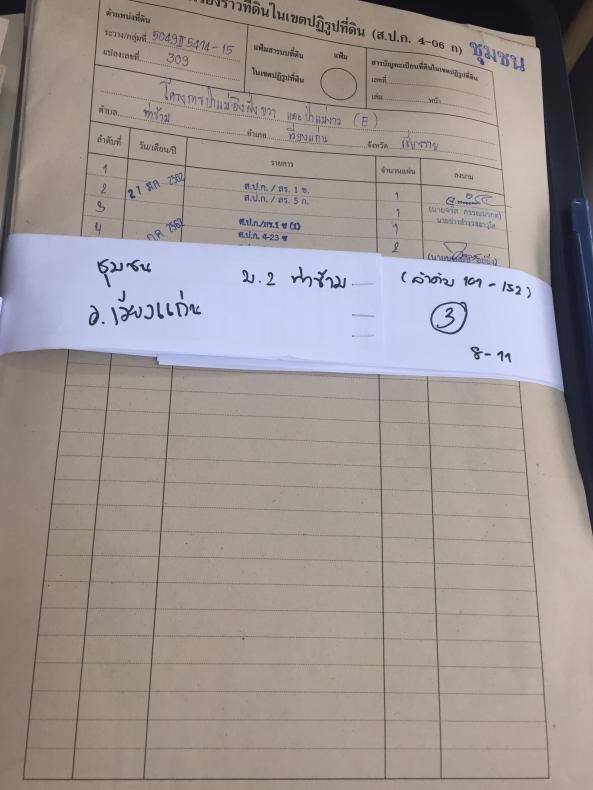 เรื่องราวที่ดินในเขตปฏิรูปที่ดิน (ส.ป.ก. 4-06 ก) ชุมชน
ตำแหน่งที่ดิน
ระวาง/กลุ่มที่ 5049 II 5414-15
แปลงเลขที่ 309
แฟ้มสารบบที่ดิน แฟ้ม
ในเขตปฏิรูปที่ดิน
สารบัญทะเบียนที่ดินในเขตปฏิรูปที่ดิน
เลขที่
เล่ม หน้า
โครงการป่าแม่อิงฝั่งขวา และป่าแม่งาว (E)
ตำบล ท่าข้าม อำเภอ เวียงแก่น จังหวัด เชียงราย
ลำดับที่ วัน/เดือน/ปี รายการ จำนวนแผ่น ลงนาม
1 ส.ป.ก. / สร. 1 ข. 1
2 27 ตค 2562 ส.ป.ก. / สร. 5 ก. 1
3 ส.ป.ก./สร.1 ข (1) 1
4 2562 ส.ป.ก. 4-23 ข 2
ชุมชน ม.2 ท่าข้าม (ลำดับ 101 - 132)
อ.เวียงแก่น 3
8-11